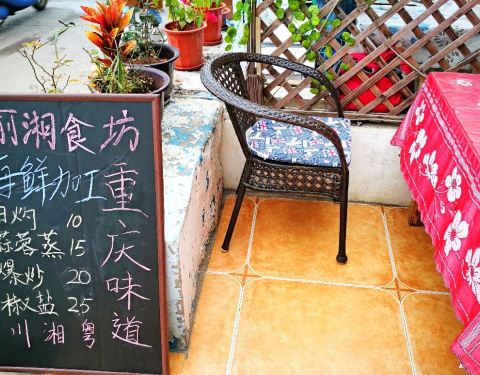 湘食坊
海鲜加工
白灼 10
蒜蓉蒸 15
爆炒 20
椒盐 25
川湘粤
重庆味道